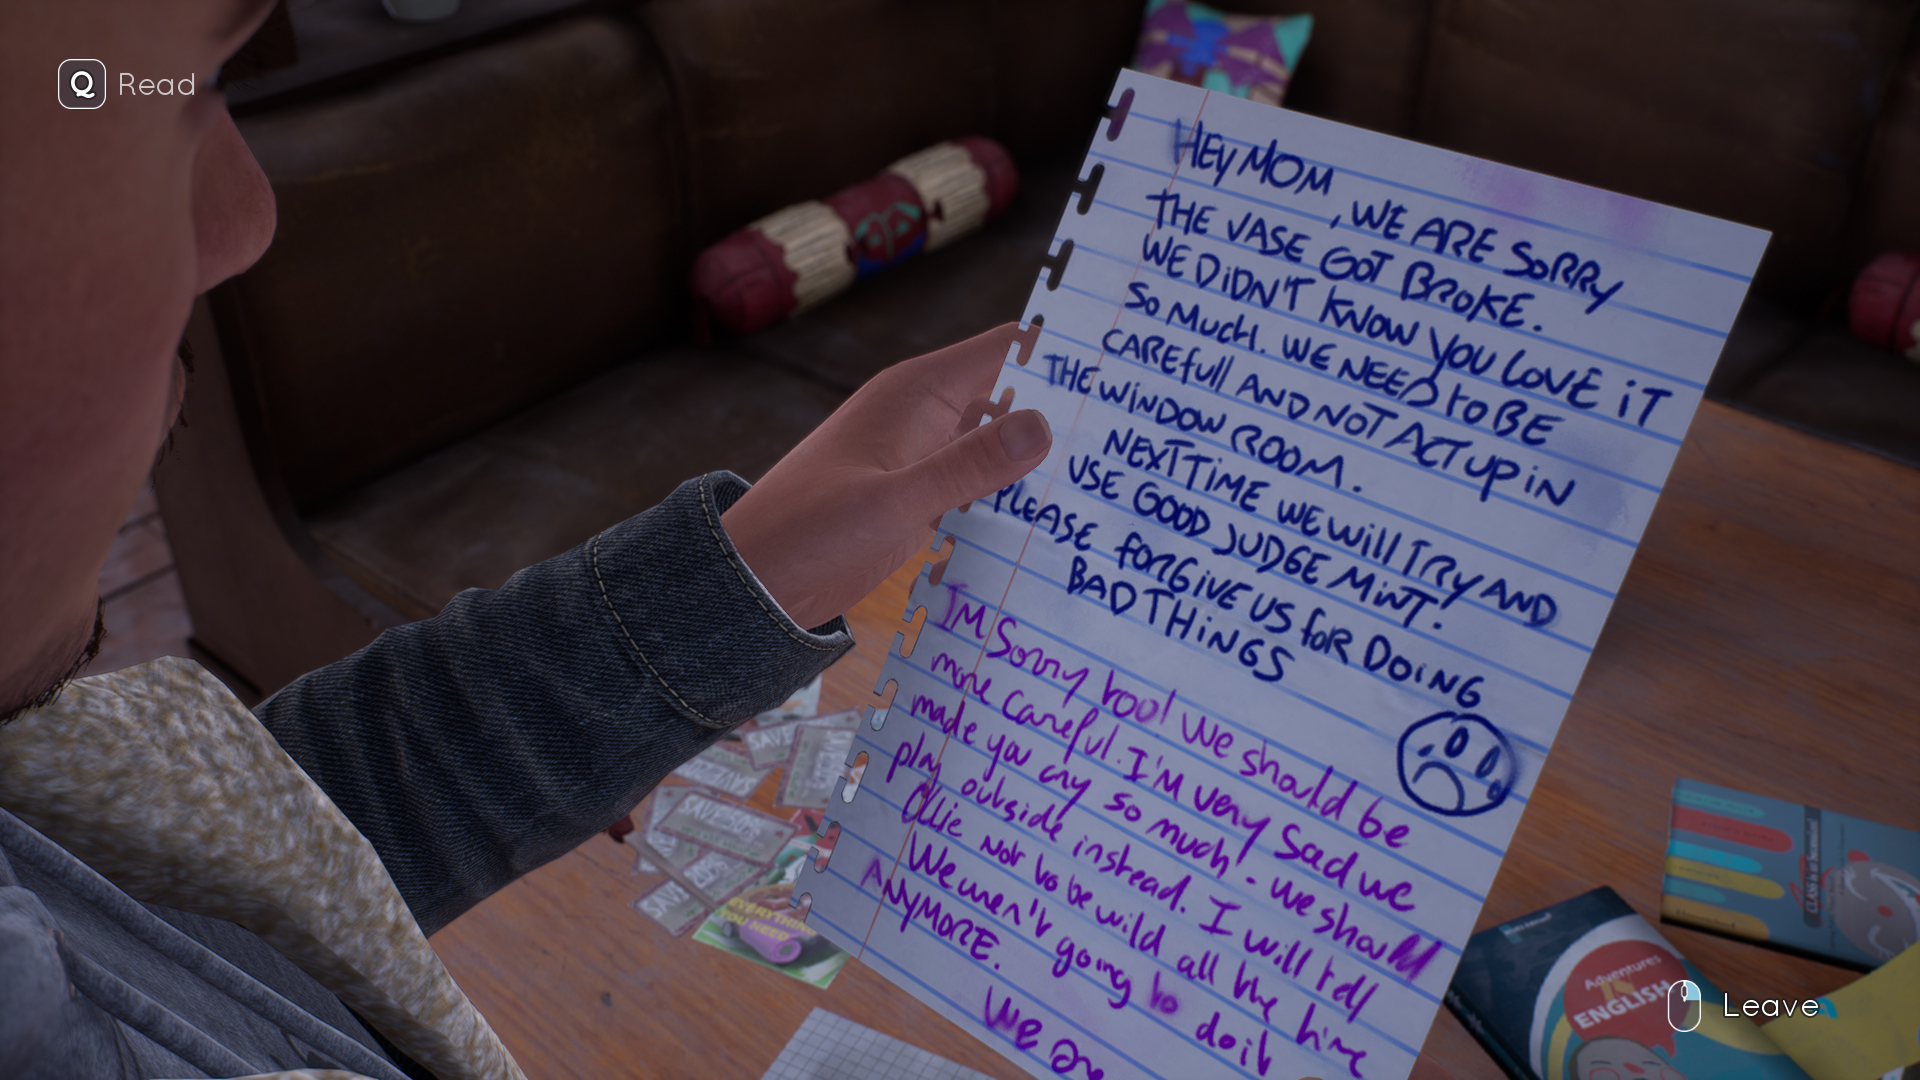 Q Read
HEY MOM, WE ARE SORRY
THE VASE GOT BROKE.
WE DIDN'T KNOW YOU LOVE IT
SO MUCH. WE NEED TO BE
CAREfull AND NOT ACT UP IN
THE WINDOW ROOM.
NEXT TIME WE Will TRY AND
USE GOOD JUDGE MINT.
PLEASE FORGIVE US FOR DOING
BAD THINGS
I'M Sorry too! We should be
more careful. I'M very sad we
made you cry so much. we should
play outside instead. I will tell
Ollie not to be wild all the time
We weren't going to do it
ANYMORE.
We are
SAVE
SAVE
SAVE 50%
SAVE
EVERYTHING
YOU NEED
Adventures
IN
ENGLISH
Leave